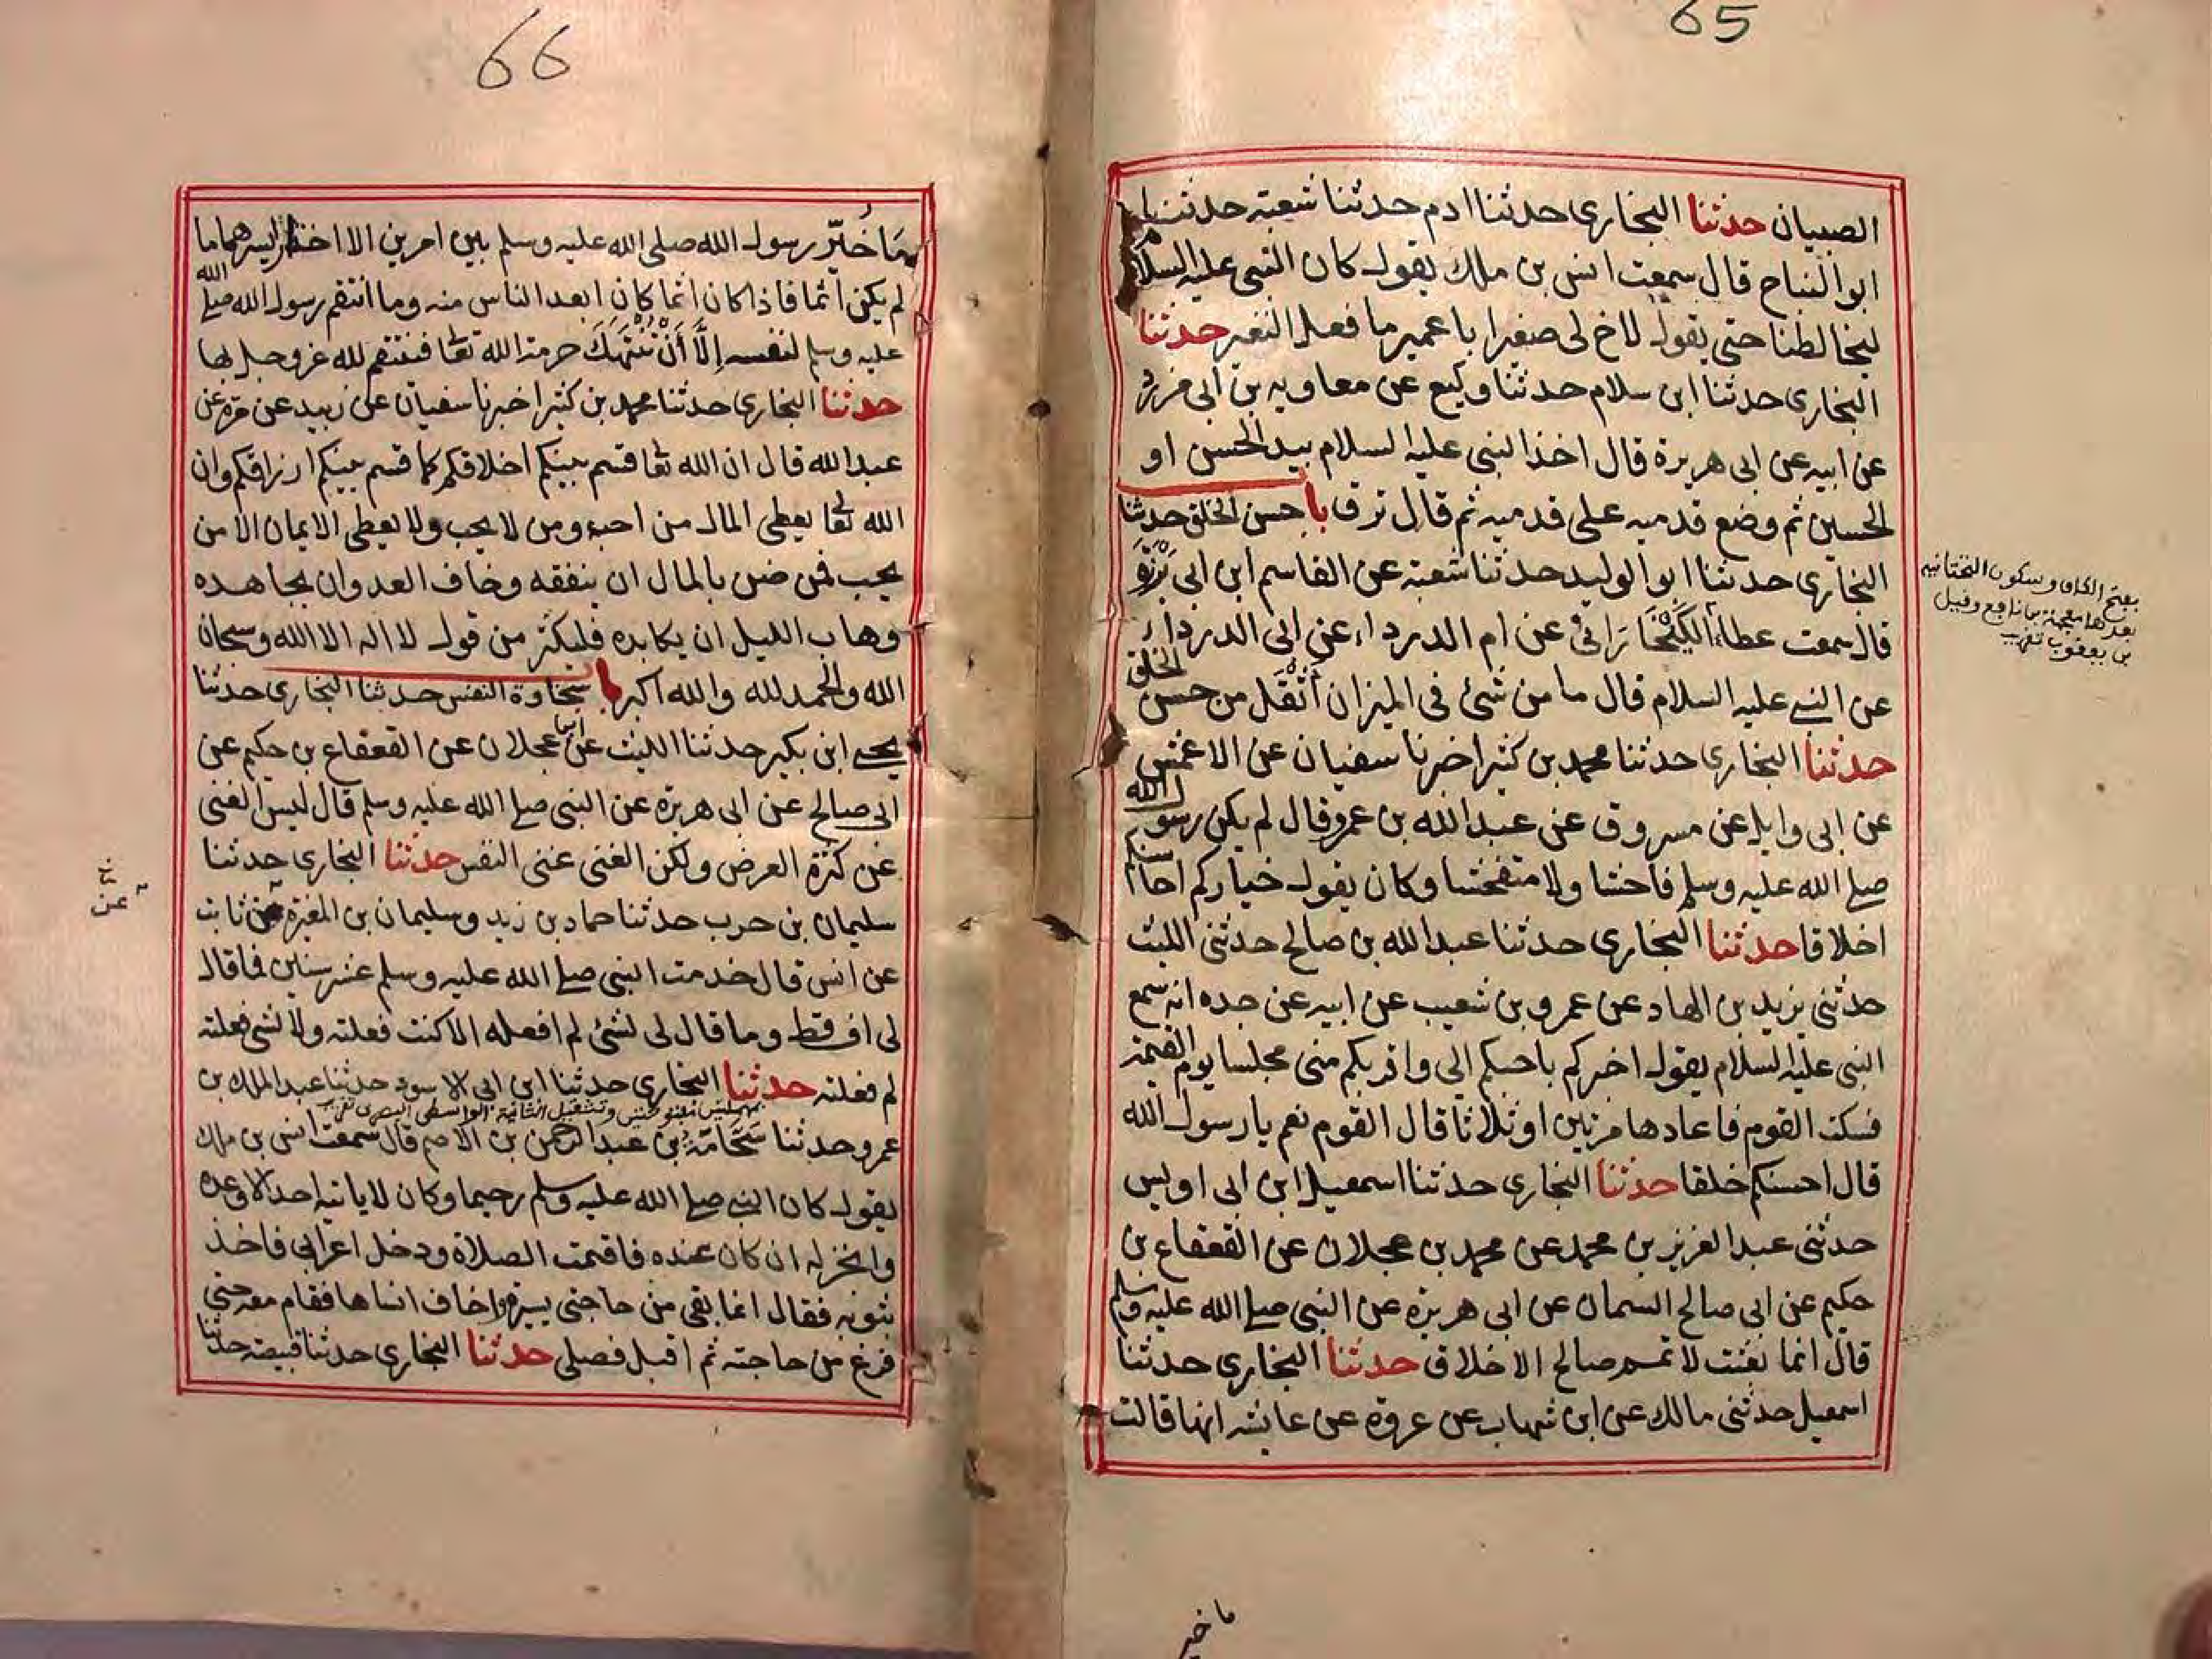 65
الصبيان حدثنا البخارى حدثنا ادم حدثنا شعبة حدثنا
ابو التياح قال سمعت انس بن ملك يقول كان النبى عليه السلام
ليخالطنا حتى يقول لاخ لى صغير ابا عمير ما فعل النغير حدثنا
البخارى حدثنا ابن سلام حدثنا وكيع عن معاويه بن ابى مزرد
عن ابيه عن ابى هريرة قال اخذ النبى عليه السلام بيد الحسن او
الحسين ثم وضع قدميه على قدميه ثم قال ترق باحسن الخلق حدثنا
البخارى حدثنا ابو الوليد حدثنا شعبة عن القاسم ابن ابى بزة
قال سمعت عطاء الكيخارانى عن ام الدرداء عن ابى الدرداء
عن النبى عليه السلام قال ما من شئ فى الميزان أثقل من حسن الخلق
حدثنا البخارى حدثنا محمد بن كثير اخبرنا سفيان عن الاعمش
عن ابى وايل عن مسروق عن عبد الله بن عمرو قال لم يكن رسول الله
صلى الله عليه وسلم فاحشا ولا متفحشا وكان يقول خياركم احاسنكم
اخلاقا حدثنا البخارى حدثنا عبد الله بن صالح حدثنى الليث
حدثنى يزيد بن الهاد عن عمرو بن شعيب عن ابيه عن جده انه سمع
النبى عليه السلام يقول اخبركم باحبكم الى واقربكم منى مجلسا يوم القيمة
فسكت القوم فاعادها مرتين او ثلاثا قال القوم نعم يا رسول الله
قال احسنكم خلقا حدثنا البخارى حدثنا اسمعيل ابن ابى اويس
حدثنى عبد العزيز بن محمد عن محمد بن عجلان عن القعقاع بن
حكيم عن ابى صالح السمان عن ابى هريرة عن النبى صلى الله عليه وسلم
قال انما بعثت لاتمم صالح الاخلاق حدثنا البخارى حدثنا
اسمعيل حدثنى مالك عن ابن شهاب عن عروة عن عايشه انها قالت
بفتح الكاف وسكون التحتانيه
بعدها معجمة بن نافع وقيل
بن يعقوب تقريب
ما خير
66
ما خُيّر رسول الله صلى الله عليه وسلم بين امرين الا اختار ايسرهما ما
لم يكن اثما فاذا كان اثما كان ابعد الناس منه وما انتقم رسول الله صلى الله
عليه وسلم لنفسه إلَّا أَنْ تُنْتَهَكَ حرمة الله تعا فينتقم لله عز وجل بها
حدثنا البخارى حدثنا محمد بن كثير اخبرنا سفيان عن زبيد عن مرة عن
عبد الله قال ان الله تعا قسم بينكم اخلاقكم كما قسم بينكم ارزاقكم وان
الله تعا يعطى المال من احب ومن لا يحب ولا يعطى الايمان الا من
يحب فمن ضن بالمال ان ينفقه وخاف العدو ان يجاهده
وهاب الليل ان يكابده فليكثر من قول لا اله الا الله وسبحان
الله والحمد لله والله اكبر با سخاوة النفس حدثنا البخارى حدثنا
يحيى ابن بكير حدثنا الليث عن ابن عجلان عن القعقاع بن حكيم عن
ابى صالح عن ابى هريرة عن النبى صلى الله عليه وسلم قال ليس الغنى
عن كثرة العرض ولكن الغنى غنى النفس حدثنا البخارى حدثنا
سليمان بن حرب حدثنا حماد بن زيد وسليمان بن المغيرة عن ثابت
عن انس قال خدمت النبى صلى الله عليه وسلم عشر سنين فما قال
لى اف قط وما قال لى لشئ لم افعله الا كنت فعلته ولا لشئ فعلته
لم فعلته حدثنا البخارى حدثنا ابن ابى الاسود حدثنا عبد الملك بن
عمرو حدثنا سَحَّامَة بن عبد الرحمن بن الاصم قال سمعت انس بن ملك
يقول كان النبى صلى الله عليه وسلم رحيما وكان لا ياتيه احد الا وعده
وانجز له ان كان عنده فاقيمت الصلاة ودخل اعرابى فاخذ
بثوبه فقال انما بقى من حاجتى يسيرة واخاف انساها فقام معه حتى
فرغ من حاجته ثم اقبل فصلى حدثنا البخارى حدثنا قبيصة حدثنا
عن